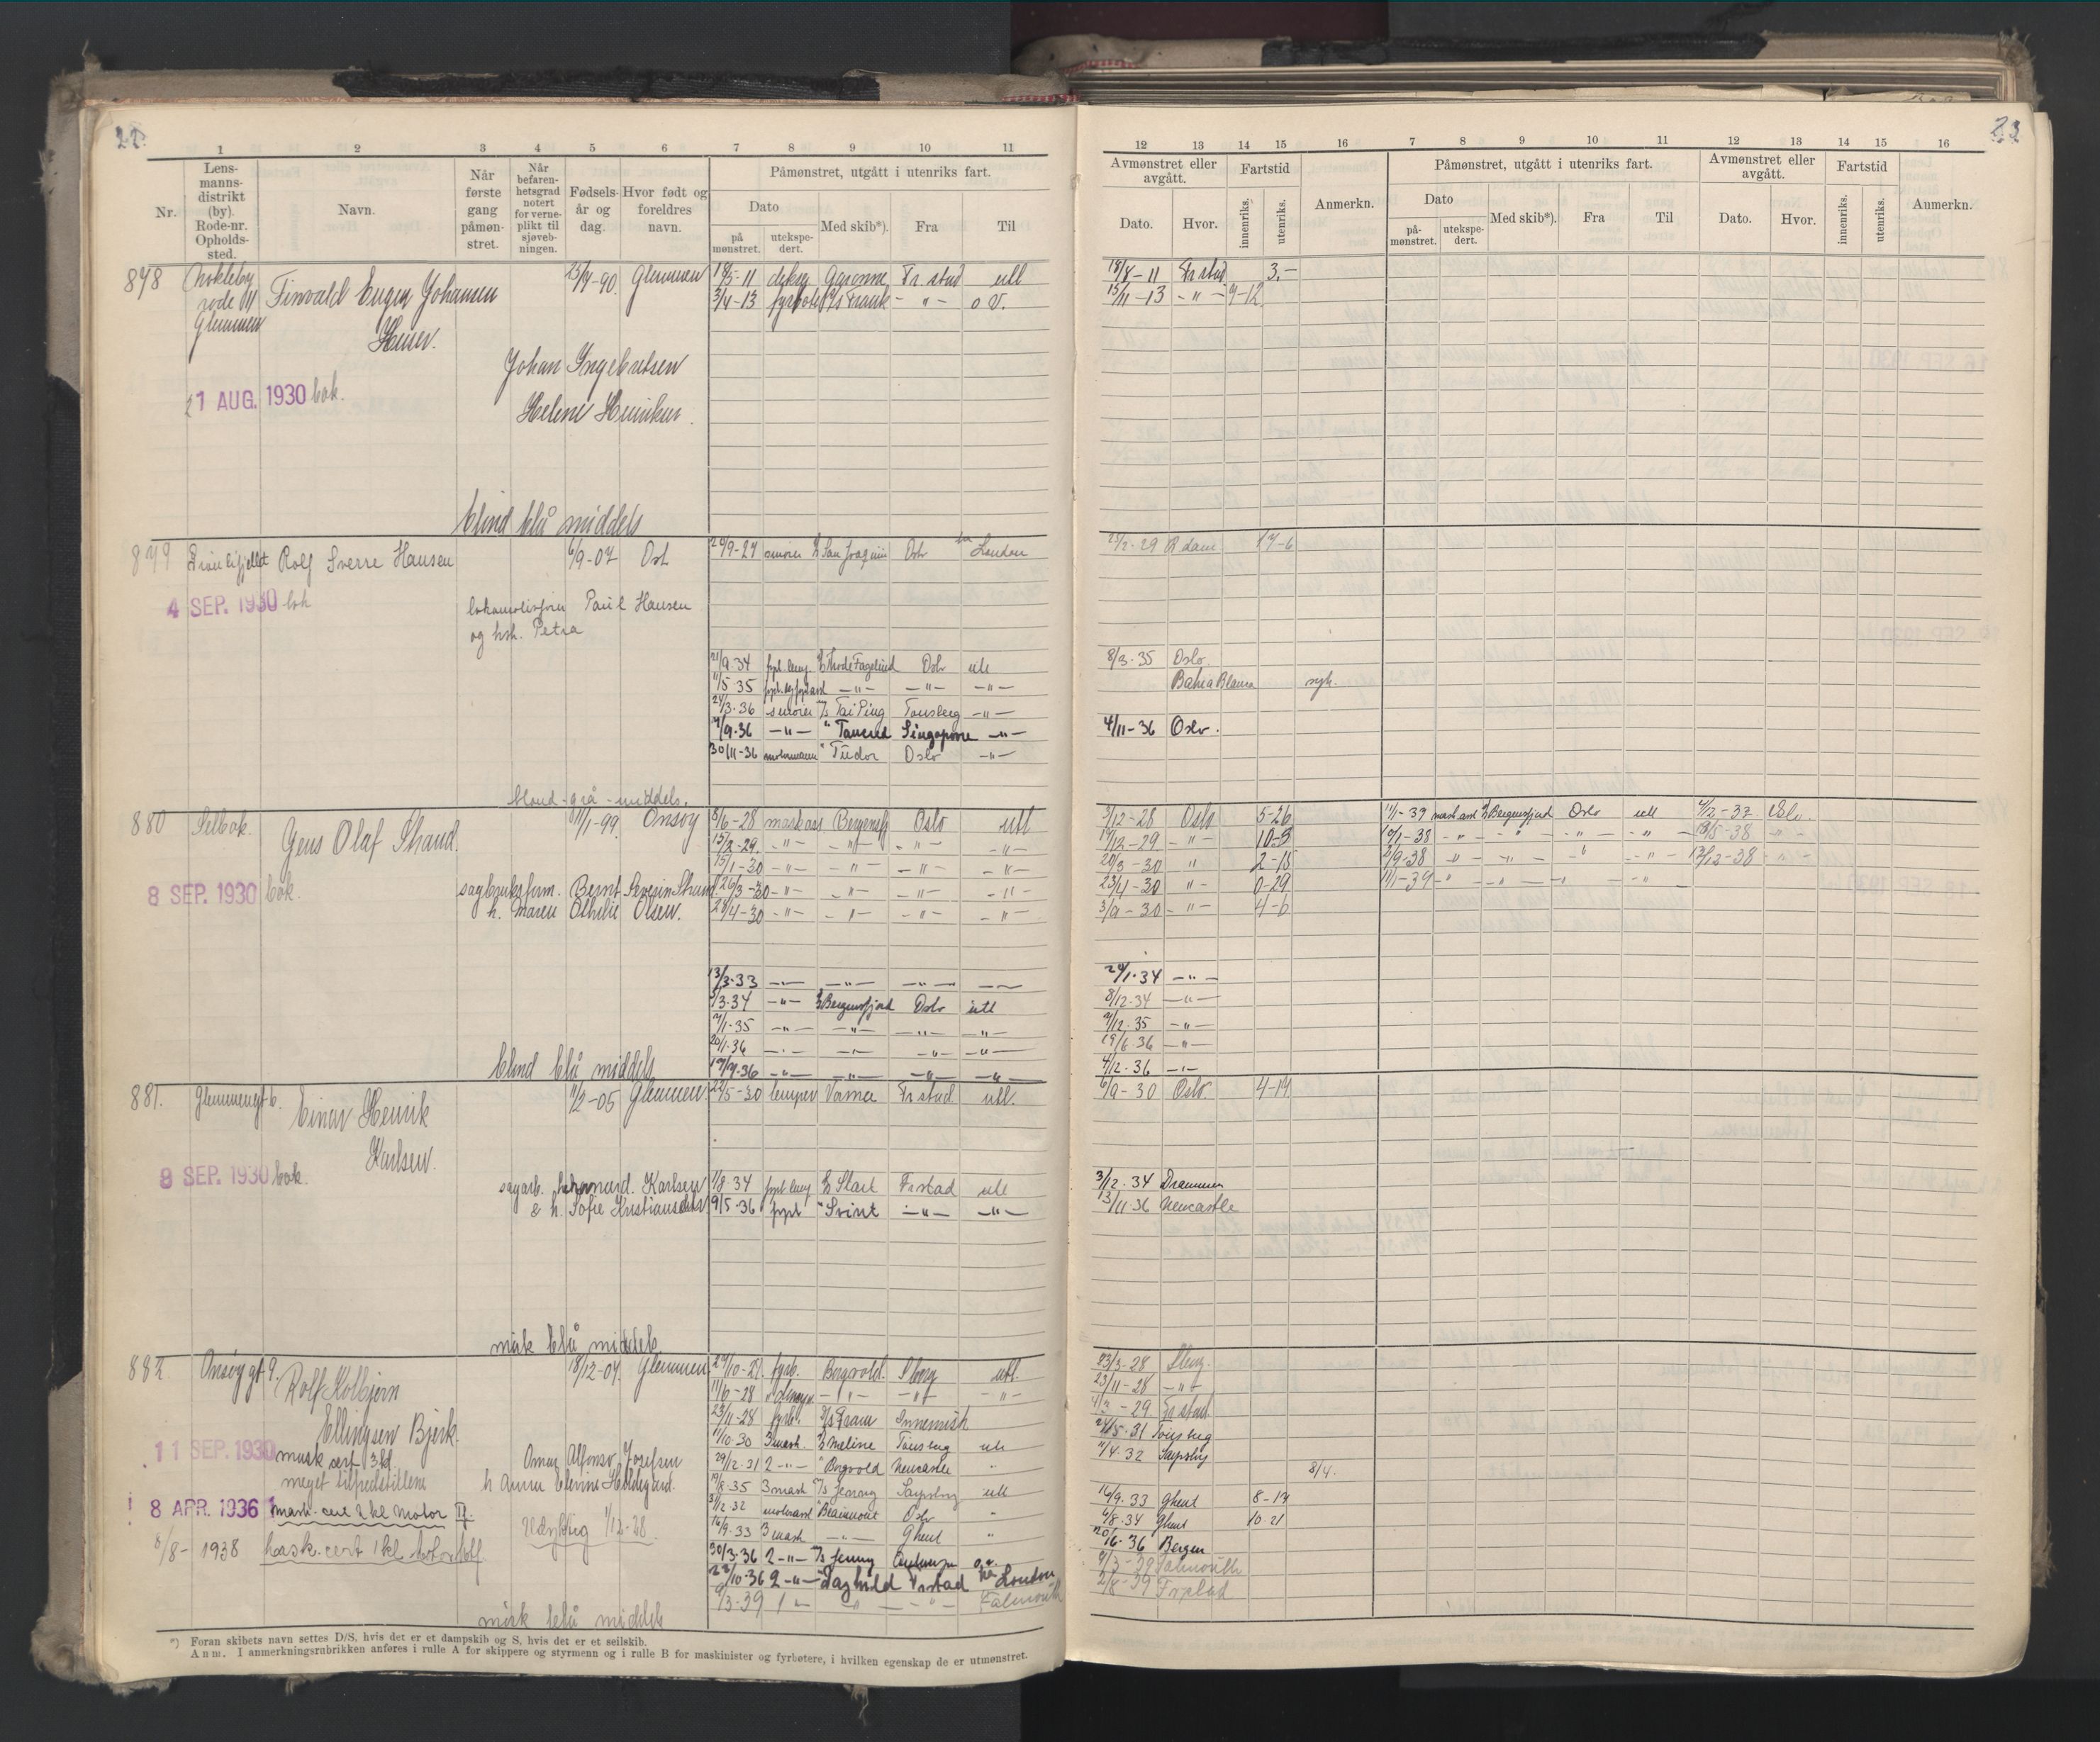 22.
1 2 3 4 5 6 7 8 9 10 11
Nr.
Lens-
manns-
distrikt
(by).
Rode-nr.
Opholds-
sted.
Navn.
Når
første
gang
påmøn-
stret.
Når
befaren-
hetsgrad
notert
for verne-
plikt til
sjøveb-
ningen.
Fødsels-
år og
dag.
Hvor født og
foreldres
navn.
Påmønstret, utgått i utenriks fart.
Dato
på
mønstret.
utekspe-
dert.
Med skib*).
Fra
Til
878 Finvald Eugen Johansen 25/9-90 Glemmen 18/5-11 Garonne Frstad utl
rode III 3/4-13 Frank - " - o V.
Glemmen
Johan Ingebretsen
21 AUG. 1930 bok.
Helene Henriksen.
blond blå middels
879 Rolf Sverre Hansen 6/9-07 Osl 20/9-27 smører San Joaquin Oslo London
4 SEP. 1930 bok
Paul Hansen
og hst. Petra
21/9.34 Oslo utl
11/5 35 -"- -"- -"-
24/3.36 smører M/S Tai Ping Tønsberg -"-
4/9.36 -"- " Tancred Singapore -"-
30/11-36 motormann " Tudor Oslo -"-
blond - grå - middels.
880 Selbak. Gens Olaf Strand. 8/11-99 Onsøy 8/6-28 maskass Bergensfj Oslo utl
15/2-29. -"- -"- -"- -"-
15/1-30 -"- -"- -"- -"-
8 SEP. 1930 bok. sagbruksform. Bernt Severin Strand 26/3-30 -"- -"- -"- -"-
h. Maren Othilie Olsen. 28/4-30 -"- -"- -"- -"-
13/3.33 -"- -"- -"- -"-
3/3-34 -"- Bergensfjord Oslo utl
7/1-35 -"- -"- -"- -"-
20/1.36 -"- -"- -"- -"-
19/9.36 -"- -"- -"- -"-
blond blå middels
881. Glemmengt 6. Einar Henrik 11/2-05 Glemmen 22/5-30 lemper Varna Frstad utl.
Karlsen.
8 SEP. 1930 bok.
sagarb. Karlsen 1/8.34 Start Frstad utl
& h. Sofie Kristiansdatter 9/5.36 fyrb " Svint -"- -"-
mørk blå middels
882 Onsøy gt 9. Rolf Kolbjørn 18/12-07 Glemmen 29/10-27. fyrb. Borgvold. Sborg utl.
11/6-28 -"- -"- -"-
Ellingsen Bjerk. 23/11-28 fyrb. D/S Fram Innenriks
11 SEP. 1930 mask cert 3 kl. Omar Alfonso Josefsen 11/10.30 3 mask. Meline Tønsberg utl
meget tilfredstillende h Anna Elevine Hildegard. 29/12.31 2 -"- " Borgvold Newcastle "
19/8.35 3 mask Sarpsborg utl
8 APR. 1936 mask. cert 2 kl Motor Tf. 31/12.32 " Beaumont Oslo "
Udyktig 1/12-28. 16/9.33 3 mask -"- Ghent "
8/8 - 1938 mask. cert 1 kl motor 30/3.36 2 -"- Jenny o. v.
22/10.36 2 -"- Daghild Frstad London
9/3-39 1 - " - " - Falmouth
mørk blå middels
*) Foran skibets navn settes D/S, hvis det er et dampskib og S, hvis det er et seilskib.
Anm. I anmerkningsrubrikken anføres i rulle A for skippere og styrmenn og i rulle B for maskinister og fyrbøtere, i hvilken egenskap de er utmønstret.
23
12 13 14 15 16 7 8 9 10 11 12 13 14 15 16
Avmønstret eller
avgått.
Dato.
Hvor.
Fartstid
innenriks.
utenriks.
Anmerkn.
Påmønstret, utgått i utenriks fart.
Dato
på-
mønstret.
utekspe-
dert.
Med skib*).
Fra
Til
Avmønstret eller
avgått.
Dato.
Hvor.
Fartstid
innenriks.
utenriks.
Anmerkn.
18/8-11 Frstad 3,-
15/11-13 -"- 7-12.
25/2-29 Rdam 17-6
8/3.35 Oslo.
Bahia Blanca syk.
4/11-36 Oslo.
3/12-28 Oslo 5-26 11/1-37 mask ass Bergensfjord Oslo utl 4/12-37 Oslo
17/12-29 -"- 10-3 10/1-38 -"- -"- -"- -"- 18/5-38 -"-
20/3-30 " 2-18 2/9-38 -"- -"- -"- -"- 13/12-38 -"-
23/4-30 "- 0-29 11/1-39 -"- -"- -"- -"-
3/9-30 -"- 4-6
29/1.34 -"-
8/12.34 -"-
9/12.35 -"-
19/6.36 -"-
4/12.36 -"-
6/9-30 Oslo. 4-14
3/12.34 Drammen
13/11.36 Newcastle
23/3-28 Sborg.
23/11-28 -"-
4/3-29. Frstad.
24/5.31 Tønsberg
11/4.32 Sarpsborg
8/4.
16/9.33 Ghent 8-14
4/8.34 Ghent 10 21
20/6-36 Bergen
9/3-39 Falmouth
2/8-39 Frstad